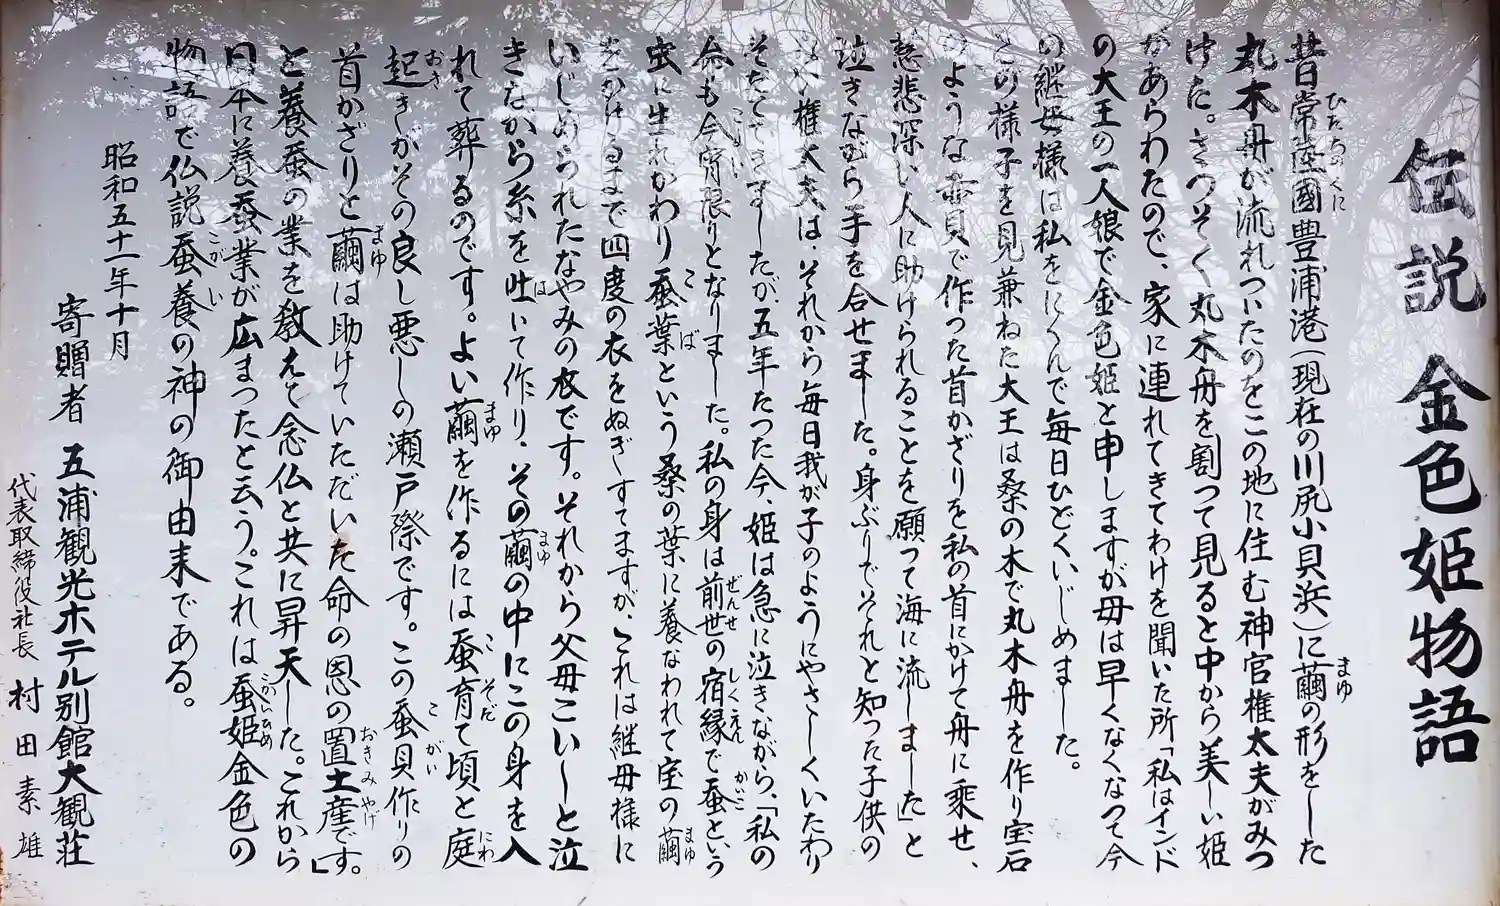 伝説 金色姫物語
昔日常陸國豊浦港(現在の川尻小貝浜)に繭の形をした
丸木舟が流れついたのをこの地に住む神官権太夫がみつ
けた。さつそく丸木舟を割つて見ると中から美しい姫
があらわたので、家に連れてきてわけを聞いた所「私はインド
の大王の一人娘で金色姫と申しますが母は早くなくなつて今
の継母様は私をにくんで毎日ひどくいじめました。
この様子を見兼ねた大王は桑の木で丸木舟を作り宝石
のような貝で作つた首かざりを私の首にかけて舟に乗せ、
慈悲深い人に助けられることを願つて海に流しました」と
泣きながら手を合せました。身ぶりでそれと知つた子供の
ない権太夫は、それから毎日我が子のようにやさしくいたわり
そだててきましたが、五年たつた今、姫は急に泣きながら、「私の
命も今宵限りとなりました。私の身は前世の宿縁で蚕という
虫に生れかわり蚕葉という桑の葉に養なわれて宝の繭
をかけるまで四度の衣をぬぎすてますが、これは継母様に
いじめられたなやみの衣です。それから父母こいしと泣
きながら糸を吐いて作り、その繭の中にこの身を入
れて葬るのです。よい繭を作るには蚕育て頃と庭
起きがその良し悪しの瀬戸際です。この蚕具作りの
首かざりと繭は助けていただいた命の恩の置土産です。」
と養蚕の業を教えて念仏と共に昇天した。これから
日本に養蚕業が広まつたと云う。これは蚕姫金色の
物語で仏説蚕養の神の御由来である。
昭和五十一年十月
寄贈者 五浦観光ホテル別館大観荘
代表取締役社長 村田素雄